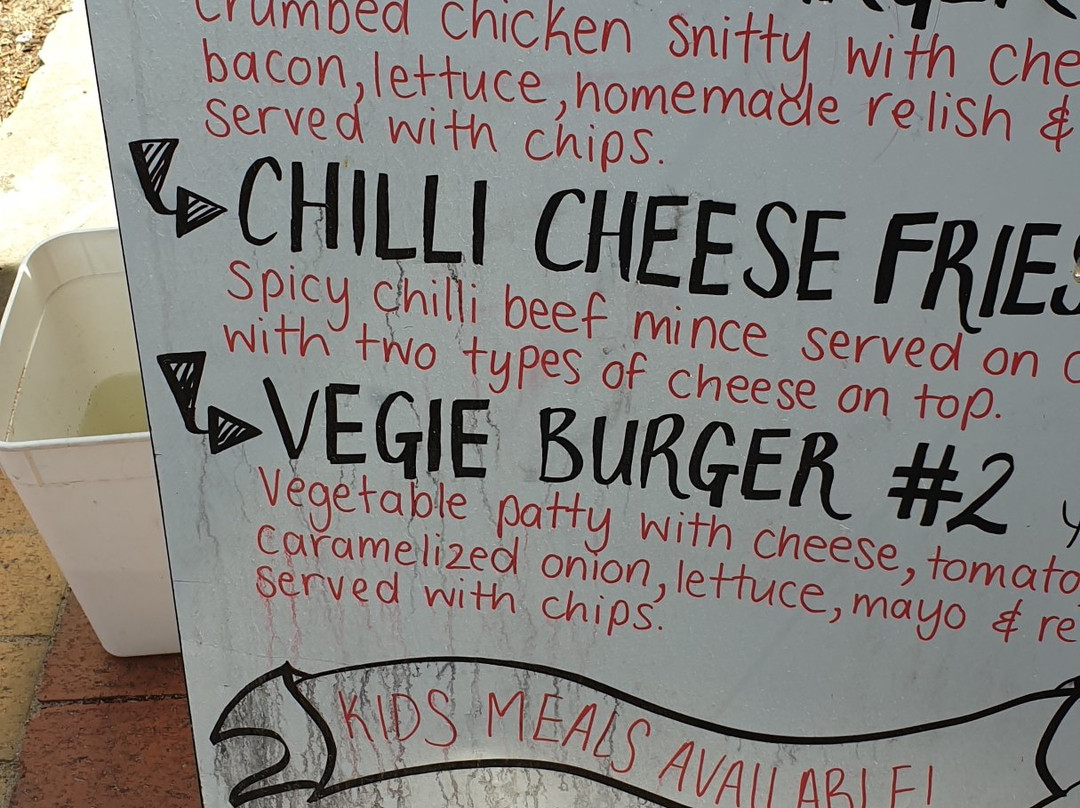 crumbed chicken snitty with che
bacon, lettuce, homemade relish &
served with chips.
CHILLI CHEESE FRIES
Spicy chilli beef mince served on
with two types of cheese on top.
VEGIE BURGER #2
Vegetable patty with cheese, tomato
caramelized onion, lettuce, mayo & re
served with chips.
KIDS MEALS AVAILABLE!